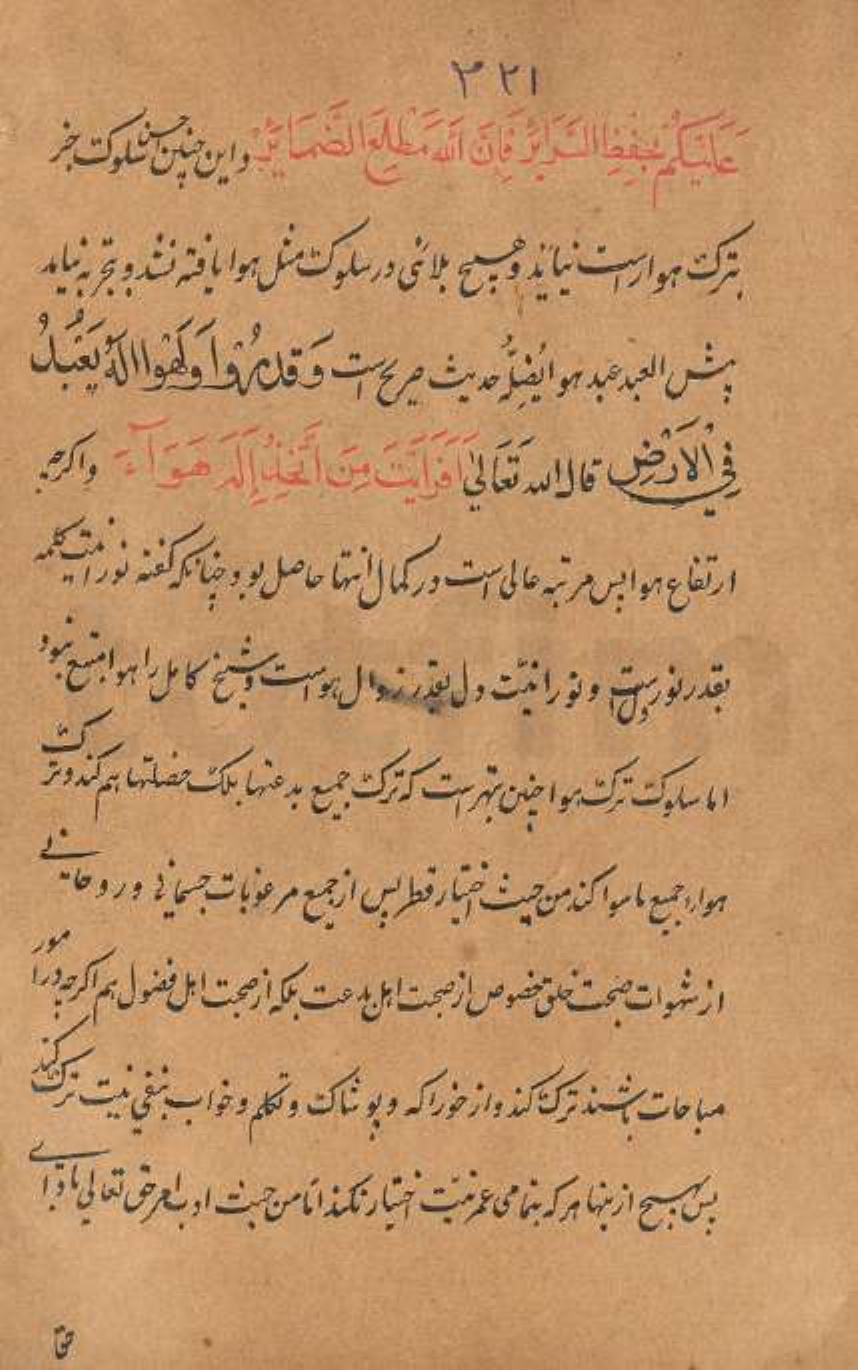 ۳۲۱
عَلَيْكُمْ بِحِفْظِ السَّرَائِرِ فَاِنَّ اللهَ مُطَّلِعُ الضَّمَايِرْ و این چنین حسن سلوکت جز
بترکت هوا راست نیاید و هیچ بلائی در سلوکت مثل هوا یافته نشد و بتجربه نیاید
بئس العبد عبد هوا یُضِلُّه حدیث صریح است وَقَدْ اَوَلَهْوَا اِلٰهٌ يُعْبَدُ
فِي الْاَرْضِ قال الله تَعَالیٰ اَفَرَاَيْتَ مَنِ اتَّخَذَ اِلٰهَهُ هَوَآءَ واکرچه
ارتفاع هوا پس مرتبه عالی است در کمال انتها حاصل بود چنانکه گفته نورانیت کلمه
بقدر نور دل است و نورانیّت دل بقدر زوال هواست و شیخ کامل را هوا متبع نبود
اما سلوکت ترکت هوا چنین بهتر است که ترکت جمیع بدعتها بلکت خصلتها هم کند و ترکت
هوا و جمیع ماسوا کند من حیث اختیار پس از جمیع مرغوبات جسمانی و روحانی
از شهوات صحبت خلق مخصوص از صحبت اهل بدعت بلکه از صحبت اهل فضول هم اگرچه در امور
مباحات باشند ترکت کند و از خوراکه و پوشاکت و تکلم و خواب بنفی نیت ترکت کند
پس هیچ از ینها هرکه بتمامی عمر نیّت اختیار نکند امّا من حیث ادب امر حق تعالی با و برای
حقا